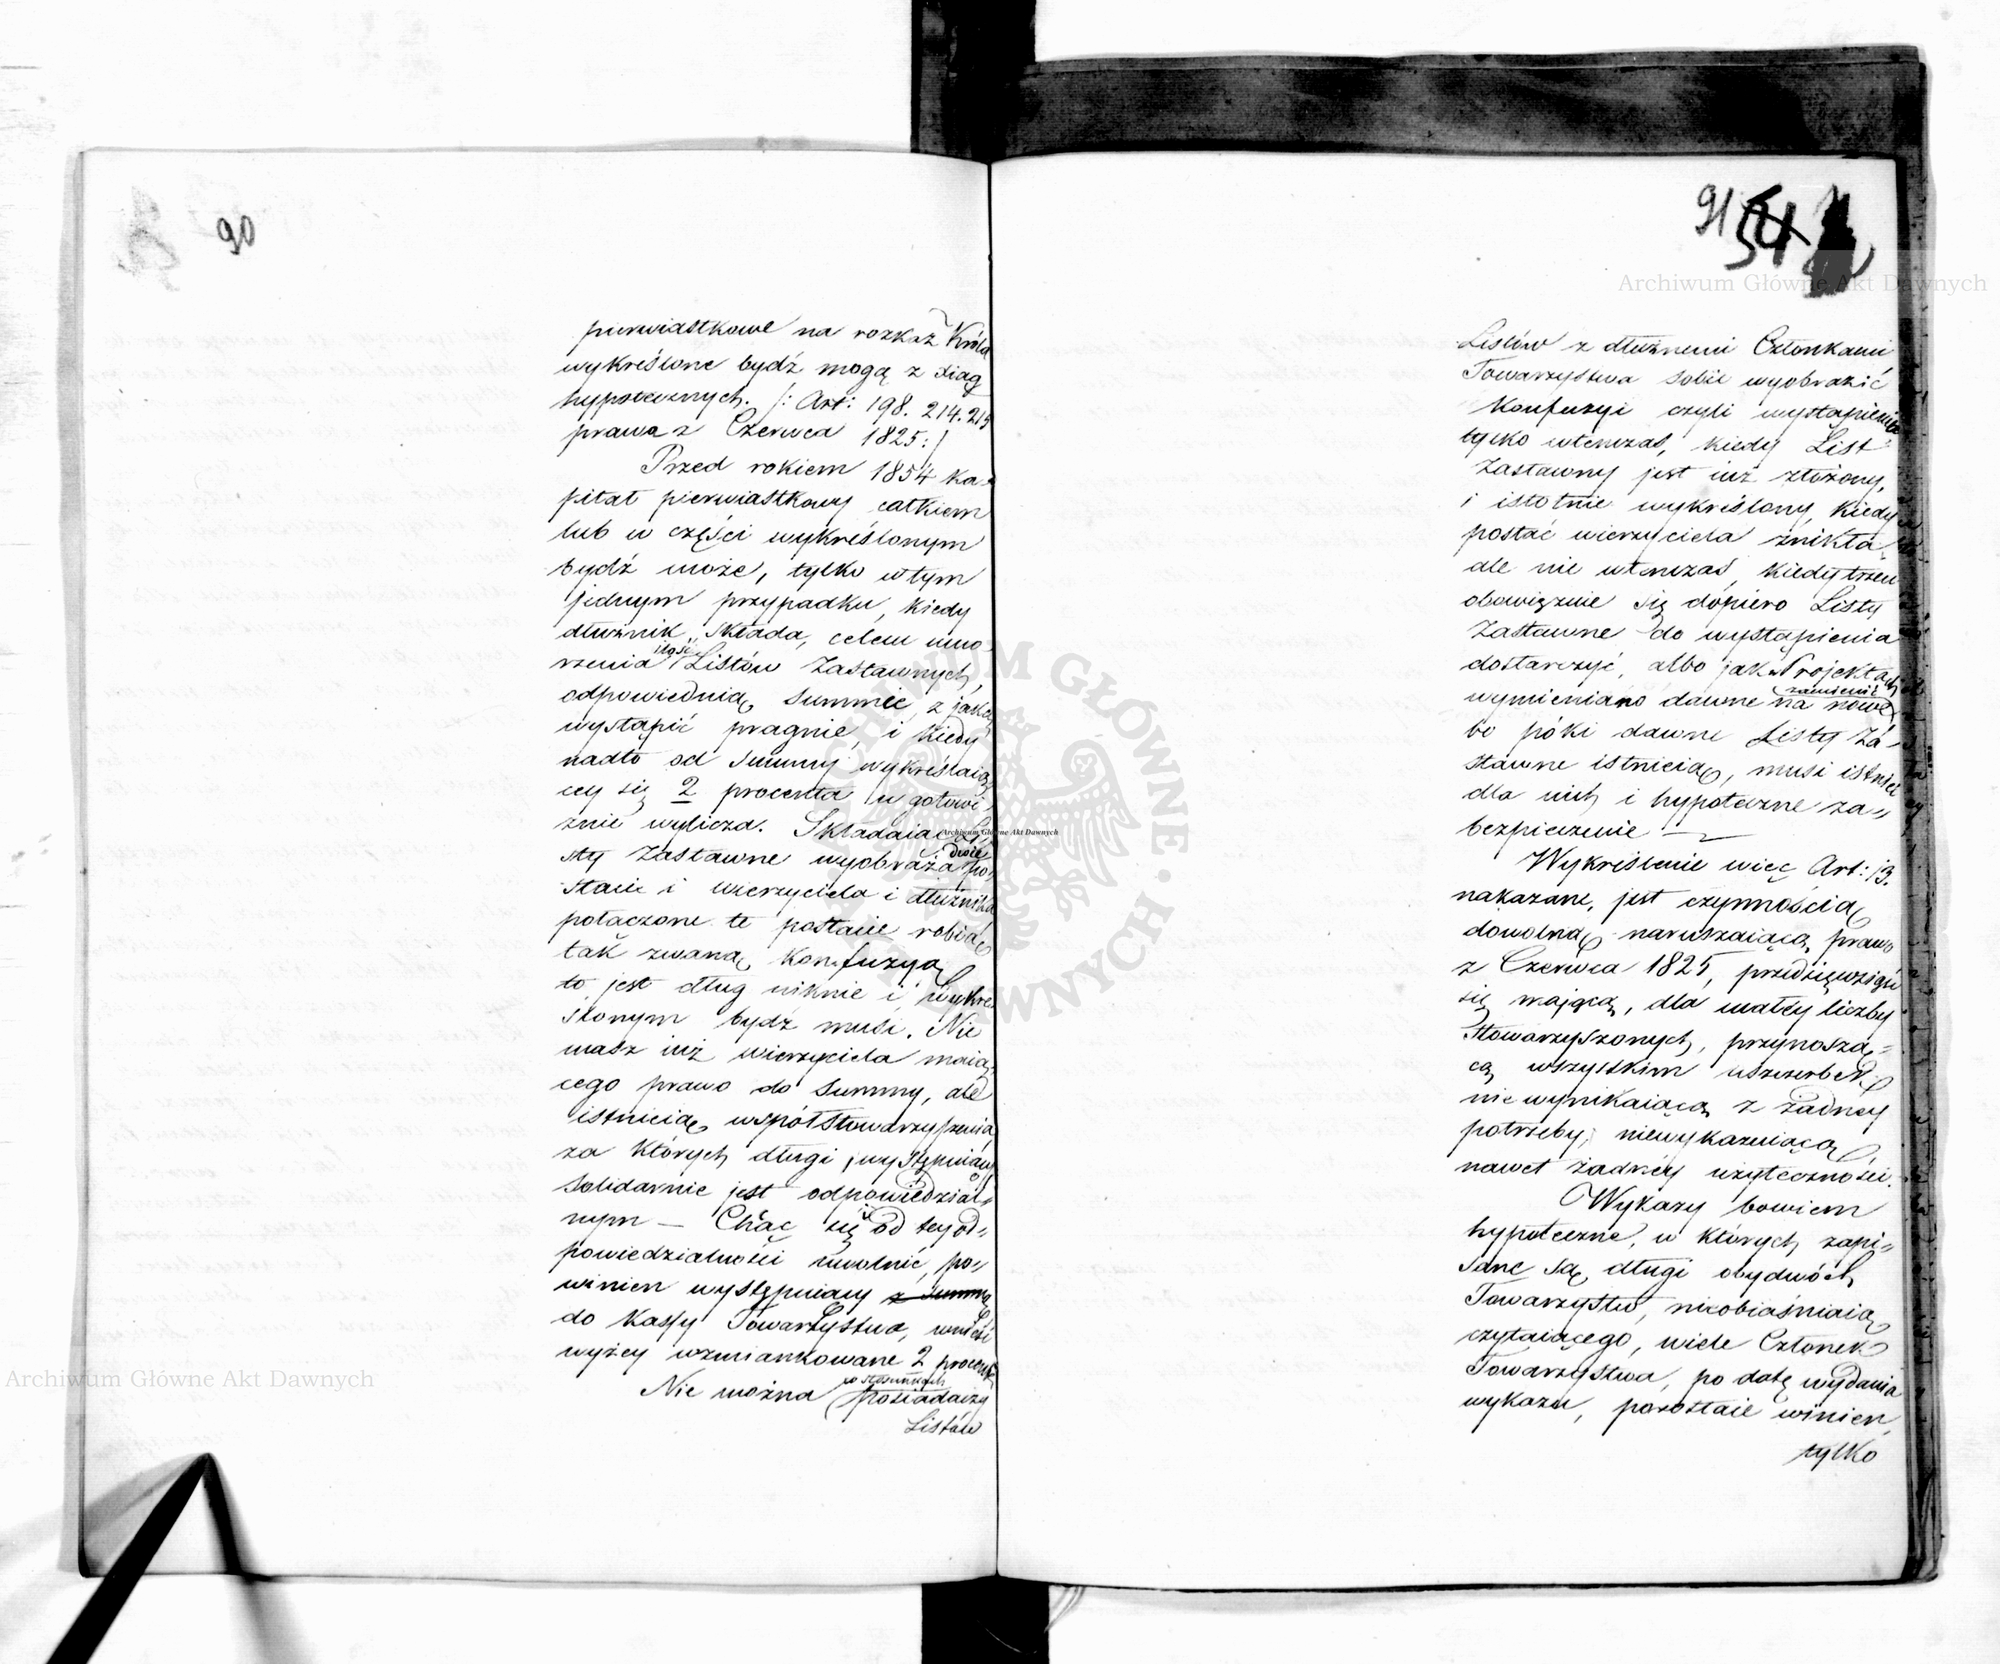 90
pierwiastkowe na rozkaz Króla
wykreślone bydź mogą z xiąg
hypotecznych. /: Art: 198. 214. 215
prawa z Czerwca 1825 :/
Przed rokiem 1854 ka-
pitał pierwiastkowy całkiem
lub w części wykreślonym
bydź może, tylko w tym
jednym przypadku, kiedy
dłużnik składa, celem umo-
rzenia ilość Listów Zastawnych,
odpowiednią summie, z jaką
wystąpić pragnie, i kiedy
nadto od summy wykreślaią
cey się 2 procenta w gotowi-
źnie wylicza. Składaiąc Li-
sty Zastawne wyobraża dwie po-
stacie i wierzyciela i dłużnika
połączone te postacie robią
tak zwaną Konfuzyą
to jest dług niknie i wykre
ślonym bydź musi. Nie
masz iuż wierzyciela maią-
cego prawo do summy, ale
istnieią współstowarzyszenia,
za których długi, występuiący
solidarnie jest odpowiedzial-
nym — Chcąc się od tey od-
powiedzialności uwolnić, po-
winien występuiący z summą
do Kassy Towarzystwa, wnieść
wyżey wzmiankowane 2 procenta
Nie można w stosunkach posiadaczy
Listów
91 54
Archiwum Główne Akt Dawnych
Listów z dłużnemi Członkami
Towarzystwa sobie wyobrazić
Konfuzyi czyli wystąpienia
tylko wtenczas, kiedy List
Zastawny jest iuż złożony,
i istotnie wykreślony, kiedy
postać wierzyciela znikła,
ale nie wtenczas, kiedy trzeci
obowięzuie się dopiero Listy
Zastawne do wystąpienia
dostarczyć, albo jak w Projektach
wymieniano dawne zamienić na nowe
bo póki dawne Listy Za-
stawne istnieią, musi istnieć
dla nich i hypoteczne za-
bezpieczenie —
Wykreślenie więc Art: 13.
nakazane, jest czynnością
dowolną, naruszaiącą prawo
z Czerwca 1825, przedsięwziąść
się mającą, dla małey liczby
Stowarzyszonych, przynoszą-
cą wszystkim uszczerbek,
nie wynikaiącą z żadney
potrzeby, niewykazuiącą
nawet żadney użyteczności.
Wykazy bowiem
hypoteczne, w których zapi-
sane są długi obydwóch
Towarzystw, nieobiaśniaią
czytaiącego, wiele Członek
Towarzystwa, po datę wydania
wykazu, pozostaie winien,
tylko
Archiwum Główne Akt Dawnych
ARCHIWUM GŁÓWNE AKT DAWNYCH
Archiwum Główne Akt Dawnych